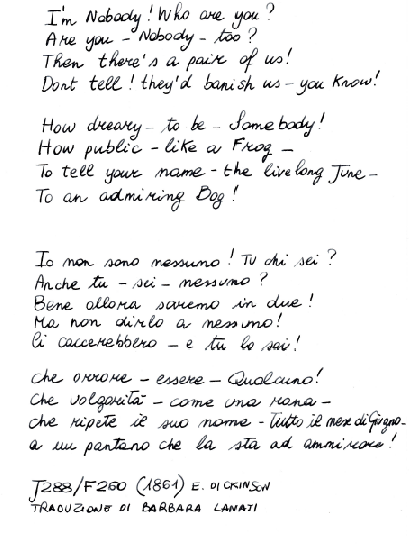 I'm Nobody! Who are you?
Are you – Nobody – too?
Then there's a pair of us!
Dont tell! they'd banish us – you know!
How dreary – to be – Somebody!
How public – like a Frog –
To tell your name – the livelong June –
To an admiring Bog!
Io non sono nessuno! Tu chi sei?
Anche tu – sei – nessuno?
Bene allora saremo in due!
Ma non dirlo a nessuno!
Ci caccerebbero – e tu lo sai!
Che orrore – essere – Qualcuno!
Che volgarità – come una rana –
che ripete il suo nome – tutto il mese di Giugno –
a un pantano che la sta ad ammirare!
J288/F260 (1861) E. DICKINSON
TRADUZIONE DI BARBARA LANATI